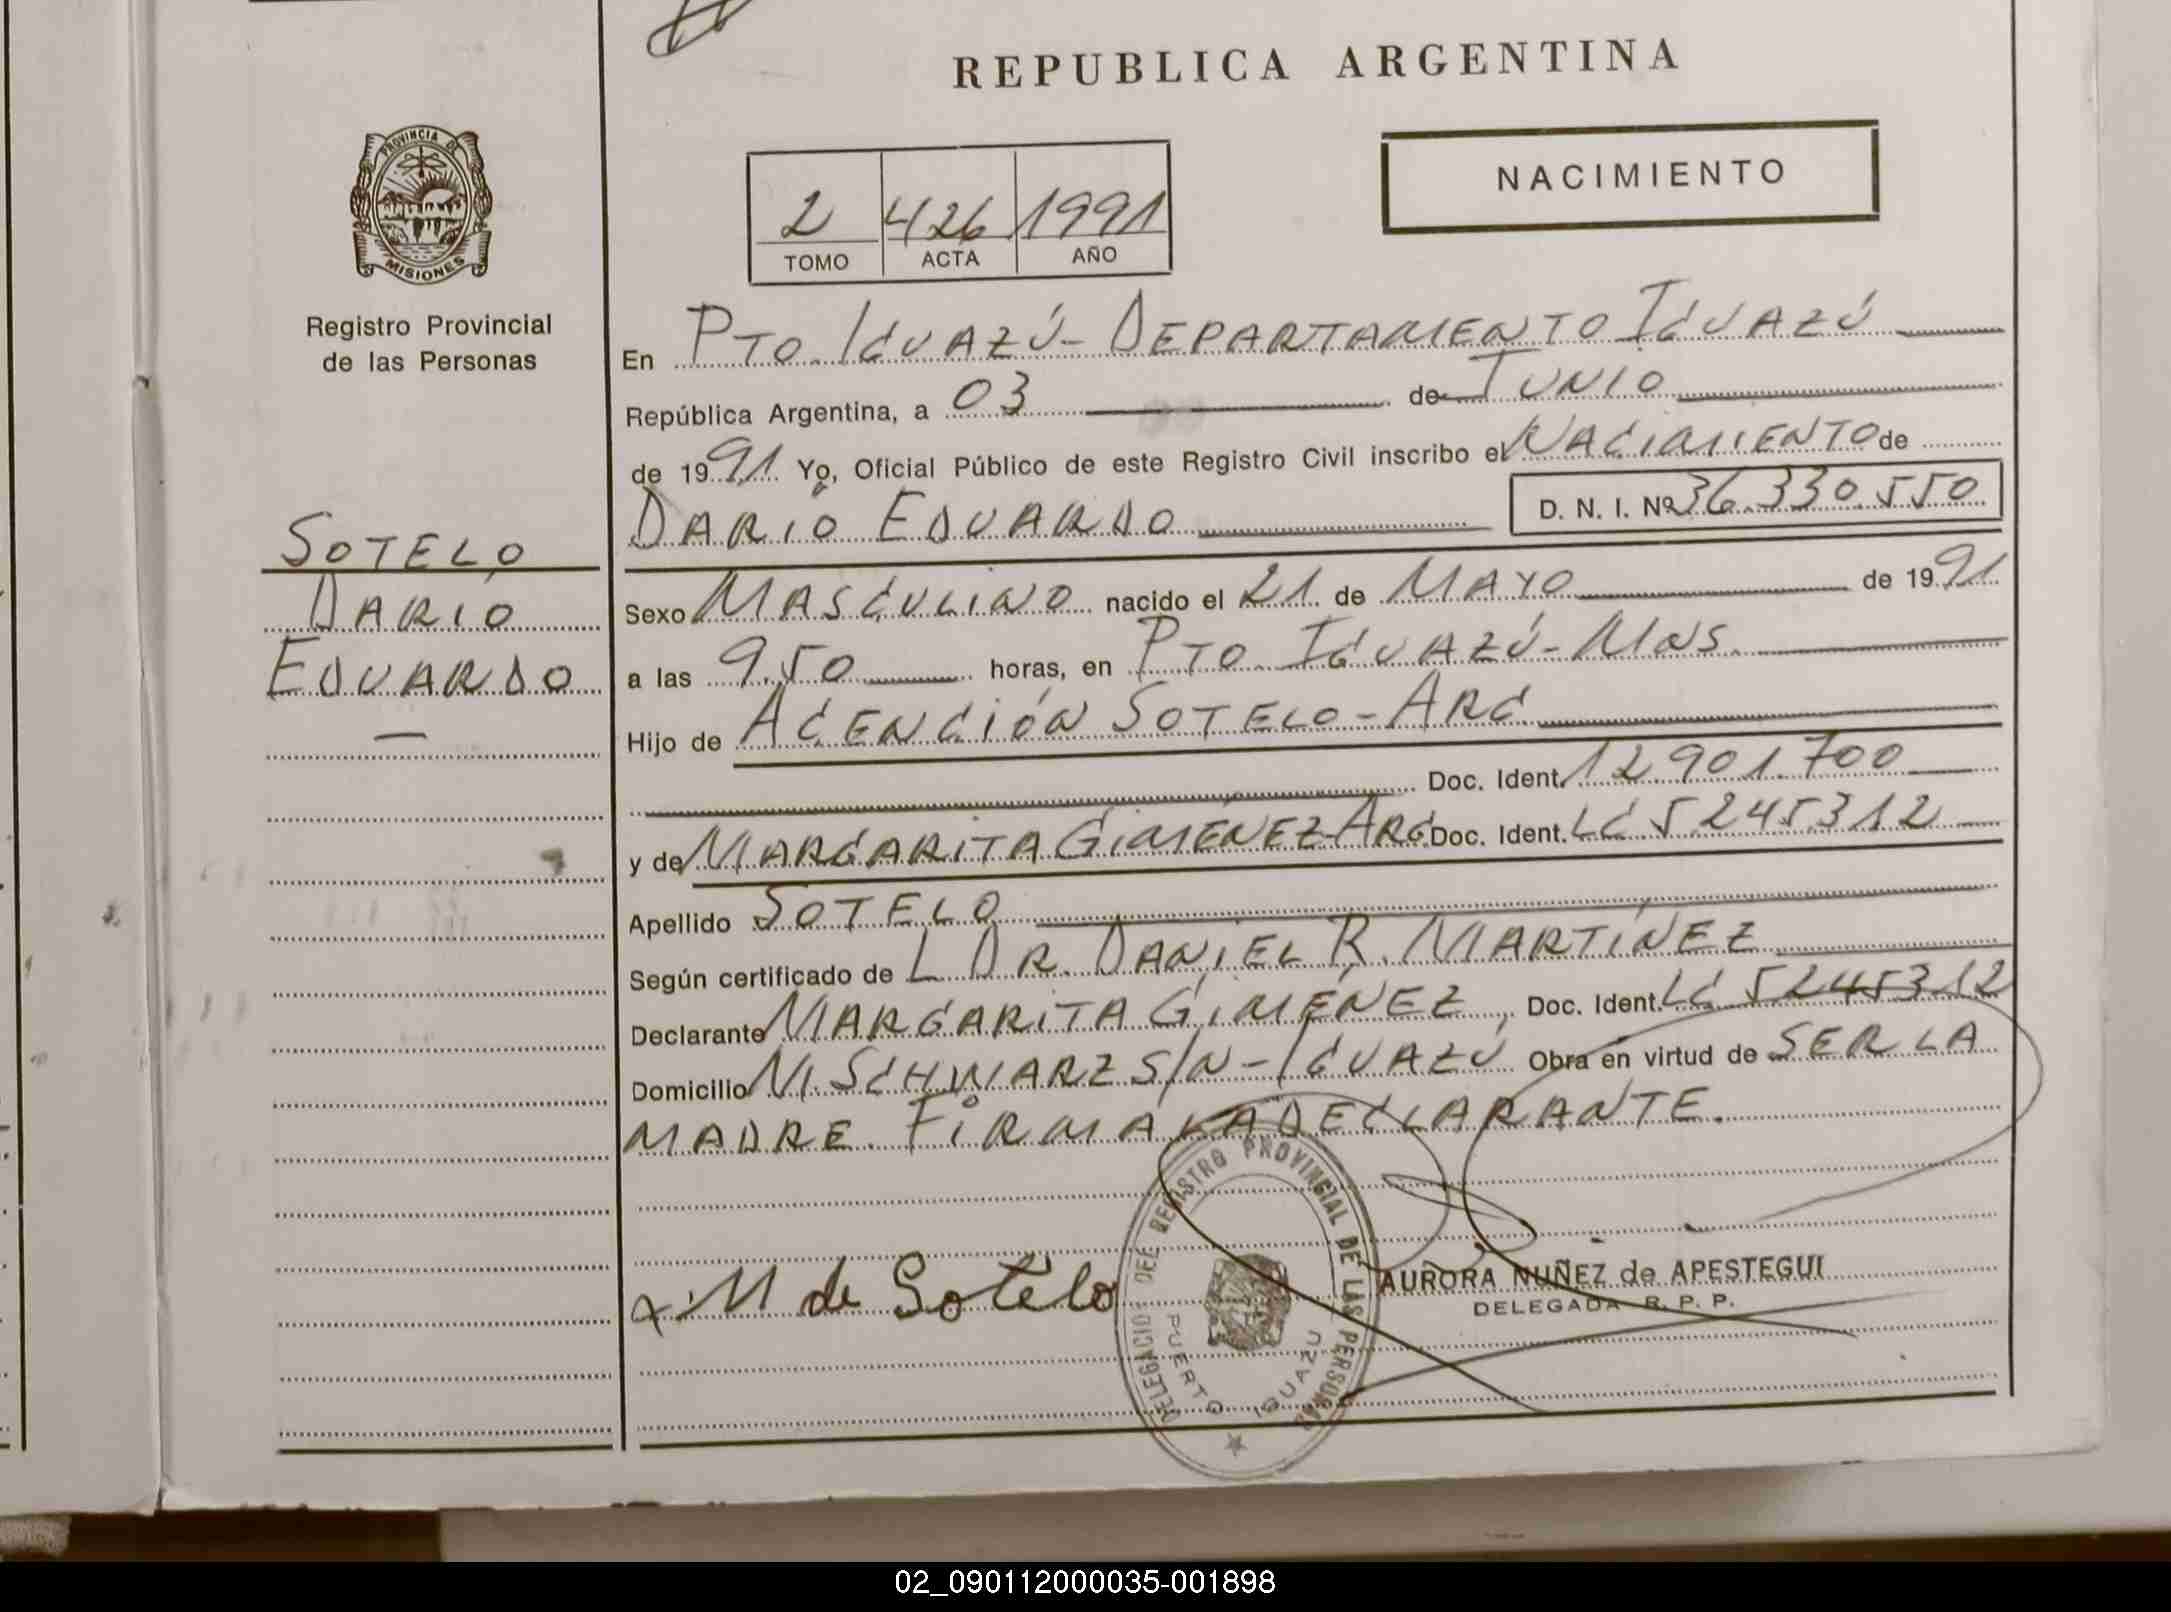 REPUBLICA ARGENTINA
PROVINCIA DE
MISIONES
Registro Provincial
de las Personas
SOTELO
DARIO
EDUARDO
NACIMIENTO
2 426 1991
TOMO ACTA AÑO
En PTO. IGUAZÚ - DEPARTAMENTO IGUAZÚ
República Argentina, a 03 de JUNIO
de 1991 Yo, Oficial Público de este Registro Civil inscribo el NACIMIENTO de
DARIO EDUARDO D. N. I. Nº 36.330.550
Sexo MASCULINO nacido el 21 de MAYO de 1991
a las 9.50 horas, en PTO. IGUAZÚ - MNS.
Hijo de ACENCIÓN SOTELO - ARG
Doc. Ident. 12.901.700
y de MARGARITA GIMÉNEZ - ARG Doc. Ident. LC 5.245.312
Apellido SOTELO
Según certificado de L DR. DANIEL R. MARTÍNEZ
Declarante MARGARITA GIMÉNEZ, Doc. Ident. LC 5245312
Domicilio M. SCHWARZ S/N - IGUAZÚ Obra en virtud de SER LA
MADRE. FIRMA LA DECLARANTE.
M de Sotelo
DELEGACIO DEL REGISTRO PROVINCIAL DE LAS PERSONAS
PUERTO IGUAZU
AURORA NUÑEZ de APESTEGUI
DELEGADA R. P. P.
02_090112000035-001898